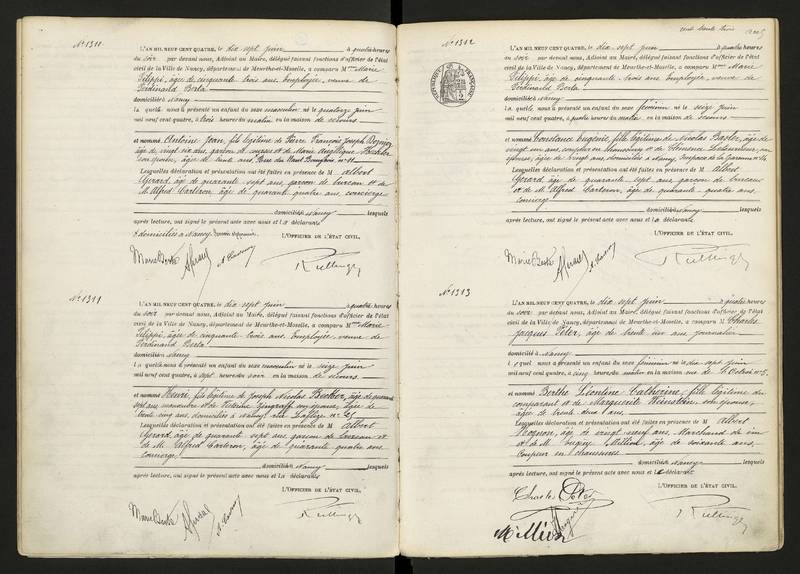 N° 1310
L'AN MIL NEUF CENT QUATRE, le dix sept juin à quatre heures
du soir par devant nous, Adjoint au Maire, délégué faisant fonctions d'officier de l'état
civil de la Ville de Nancy, département de Meurthe-et-Moselle, a comparu Mme Marie
Filippi, âgée de cinquante trois ans, Employée, veuve de
Ferdinand Berla
domiciliée à Nancy
la quelle nous a présenté un enfant du sexe masculin né le quatorze juin
mil neuf cent quatre, à trois heures du matin en la maison de secours
et nommé Antoine Jean, fils légitime de Pierre François Joseph
âgé de vingt six ans, garçon de et de Marie Angélique
son épouse, âgée de trente ans, Rue du Haut Bourgeois, n° 11
Lesquelles déclaration et présentation ont été faites en présence de M albert
Gérard, âgé de quarante sept ans garçon de bureau et de
M. Alfred Carteron, âgé de quarante quatre ans concierge
domiciliés à Nancy lesquels
après lecture, ont signé le présent acte avec nous et la déclarante
L'OFFICIER DE L'ÉTAT CIVIL,
N° 1311
L'AN MIL NEUF CENT QUATRE, le dix sept juin à quatre heures
du soir par devant nous, Adjoint au Maire, délégué faisant fonctions d'officier de l'état
civil de la Ville de Nancy, département de Meurthe-et-Moselle, a comparu Mme Marie
Filippi, âgée de cinquante trois ans, Employée, veuve de
Ferdinand Berla
domiciliée à Nancy
la quelle nous a présenté un enfant du sexe masculin né le seize juin
mil neuf cent quatre, à sept heures du soir en la maison de secours
et nommé Henri, fils légitime de Joseph Nicolas Becker, âgé de quarante
sept ans manœuvre et de son épouse, âgée de
trente cinq ans, domiciliés à n° 25
Lesquelles déclaration et présentation ont été faites en présence de M Albert
Gérard, âgé de quarante sept ans garçon de bureau et
de M. Alfred Carteron, âgé de quarante quatre ans
concierge
domiciliés à Nancy lesquels
après lecture, ont signé le présent acte avec nous et la déclarante
L'OFFICIER DE L'ÉTAT CIVIL,
N° 1312
L'AN MIL NEUF CENT QUATRE, le dix sept juin à quatre heures
du soir par devant nous, Adjoint au Maire, délégué faisant fonctions d'officier de l'état
civil de la Ville de Nancy, département de Meurthe-et-Moselle, a comparu Mme Marie
Filippi, âgée de cinquante trois ans, Employée, veuve de
Ferdinand Berla
domiciliée à Nancy
la quelle nous a présenté un enfant du sexe féminin né le seize juin
mil neuf cent quatre, à quatre heures du matin en la maison de secours
et nommé Constance Eugénie, fille légitime de Nicolas Basler, âgé de
vingt ans, et de son
épouse, âgée de vingt ans, domiciliés à Nancy
Lesquelles déclaration et présentation ont été faites en présence de M Albert
Gérard, âgé de quarante sept ans garçon de bureau
et de M. Alfred Carteron, âgé de quarante quatre ans,
concierge
domiciliés à Nancy lesquels
après lecture, ont signé le présent acte avec nous et la déclarante
L'OFFICIER DE L'ÉTAT CIVIL,
N° 1313
L'AN MIL NEUF CENT QUATRE, le dix sept juin à quatre heures
du soir par devant nous, Adjoint au Maire, délégué faisant fonctions d'officier de l'état
civil de la Ville de Nancy, département de Meurthe-et-Moselle, a comparu M Charles
Jacques Peter, âgé de trente un ans journalier
domicilié à Nancy
le quel nous a présenté un enfant du sexe féminin né le dix sept juin
mil neuf cent quatre, à cinq heures du matin en sa maison rue de n° 5
et nommé Berthe Léontine Catherine, fille légitime du
comparant et de Marguerite son épouse
âgée de trente deux ans
Lesquelles déclaration et présentation ont été faites en présence de M Albert
âgé de vingt neuf ans, Marchand de vin
et de M. Eugène âgé de soixante ans,
coupeur en chaussures
domiciliés à Nancy lesquels
après lecture, ont signé le présent acte avec nous et le déclarant
L'OFFICIER DE L'ÉTAT CIVIL,